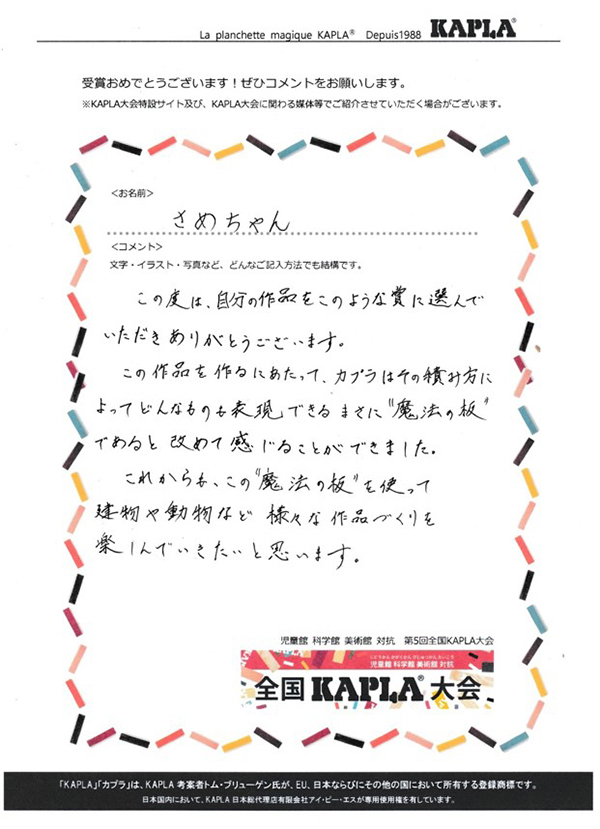 La planchette magique KAPLA® Depuis1988 KAPLA®
受賞おめでとうございます！ぜひコメントをお願いします。
※KAPLA大会特設サイト及び、KAPLA大会に関わる媒体等でご紹介させていただく場合がございます。
＜お名前＞
さめちゃん
＜コメント＞
文字・イラスト・写真など、どんなご記入方法でも結構です。
この度は、自分の作品をこのような賞に選んで
いただきありがとうございます。
この作品を作るにあたって、カプラはその積み方に
よってどんなものも表現できるまさに"魔法の板"
であると改めて感じることができました。
これからも、この"魔法の板"を使って
建物や動物など様々な作品づくりを
楽しんでいきたいと思います。
児童館 科学館 美術館 対抗 第5回全国KAPLA大会
じどうかん かがくかん びじゅつかん たいこう
児童館 科学館 美術館 対抗
全国KAPLA®大会
「KAPLA」「カプラ」は、KAPLA 考案者トム・ブリューゲン氏が、EU、日本ならびにその他の国において所有する登録商標です。
日本国内において、KAPLA 日本総代理店有限会社アイ・ピー・エスが専用使用権を有しています。